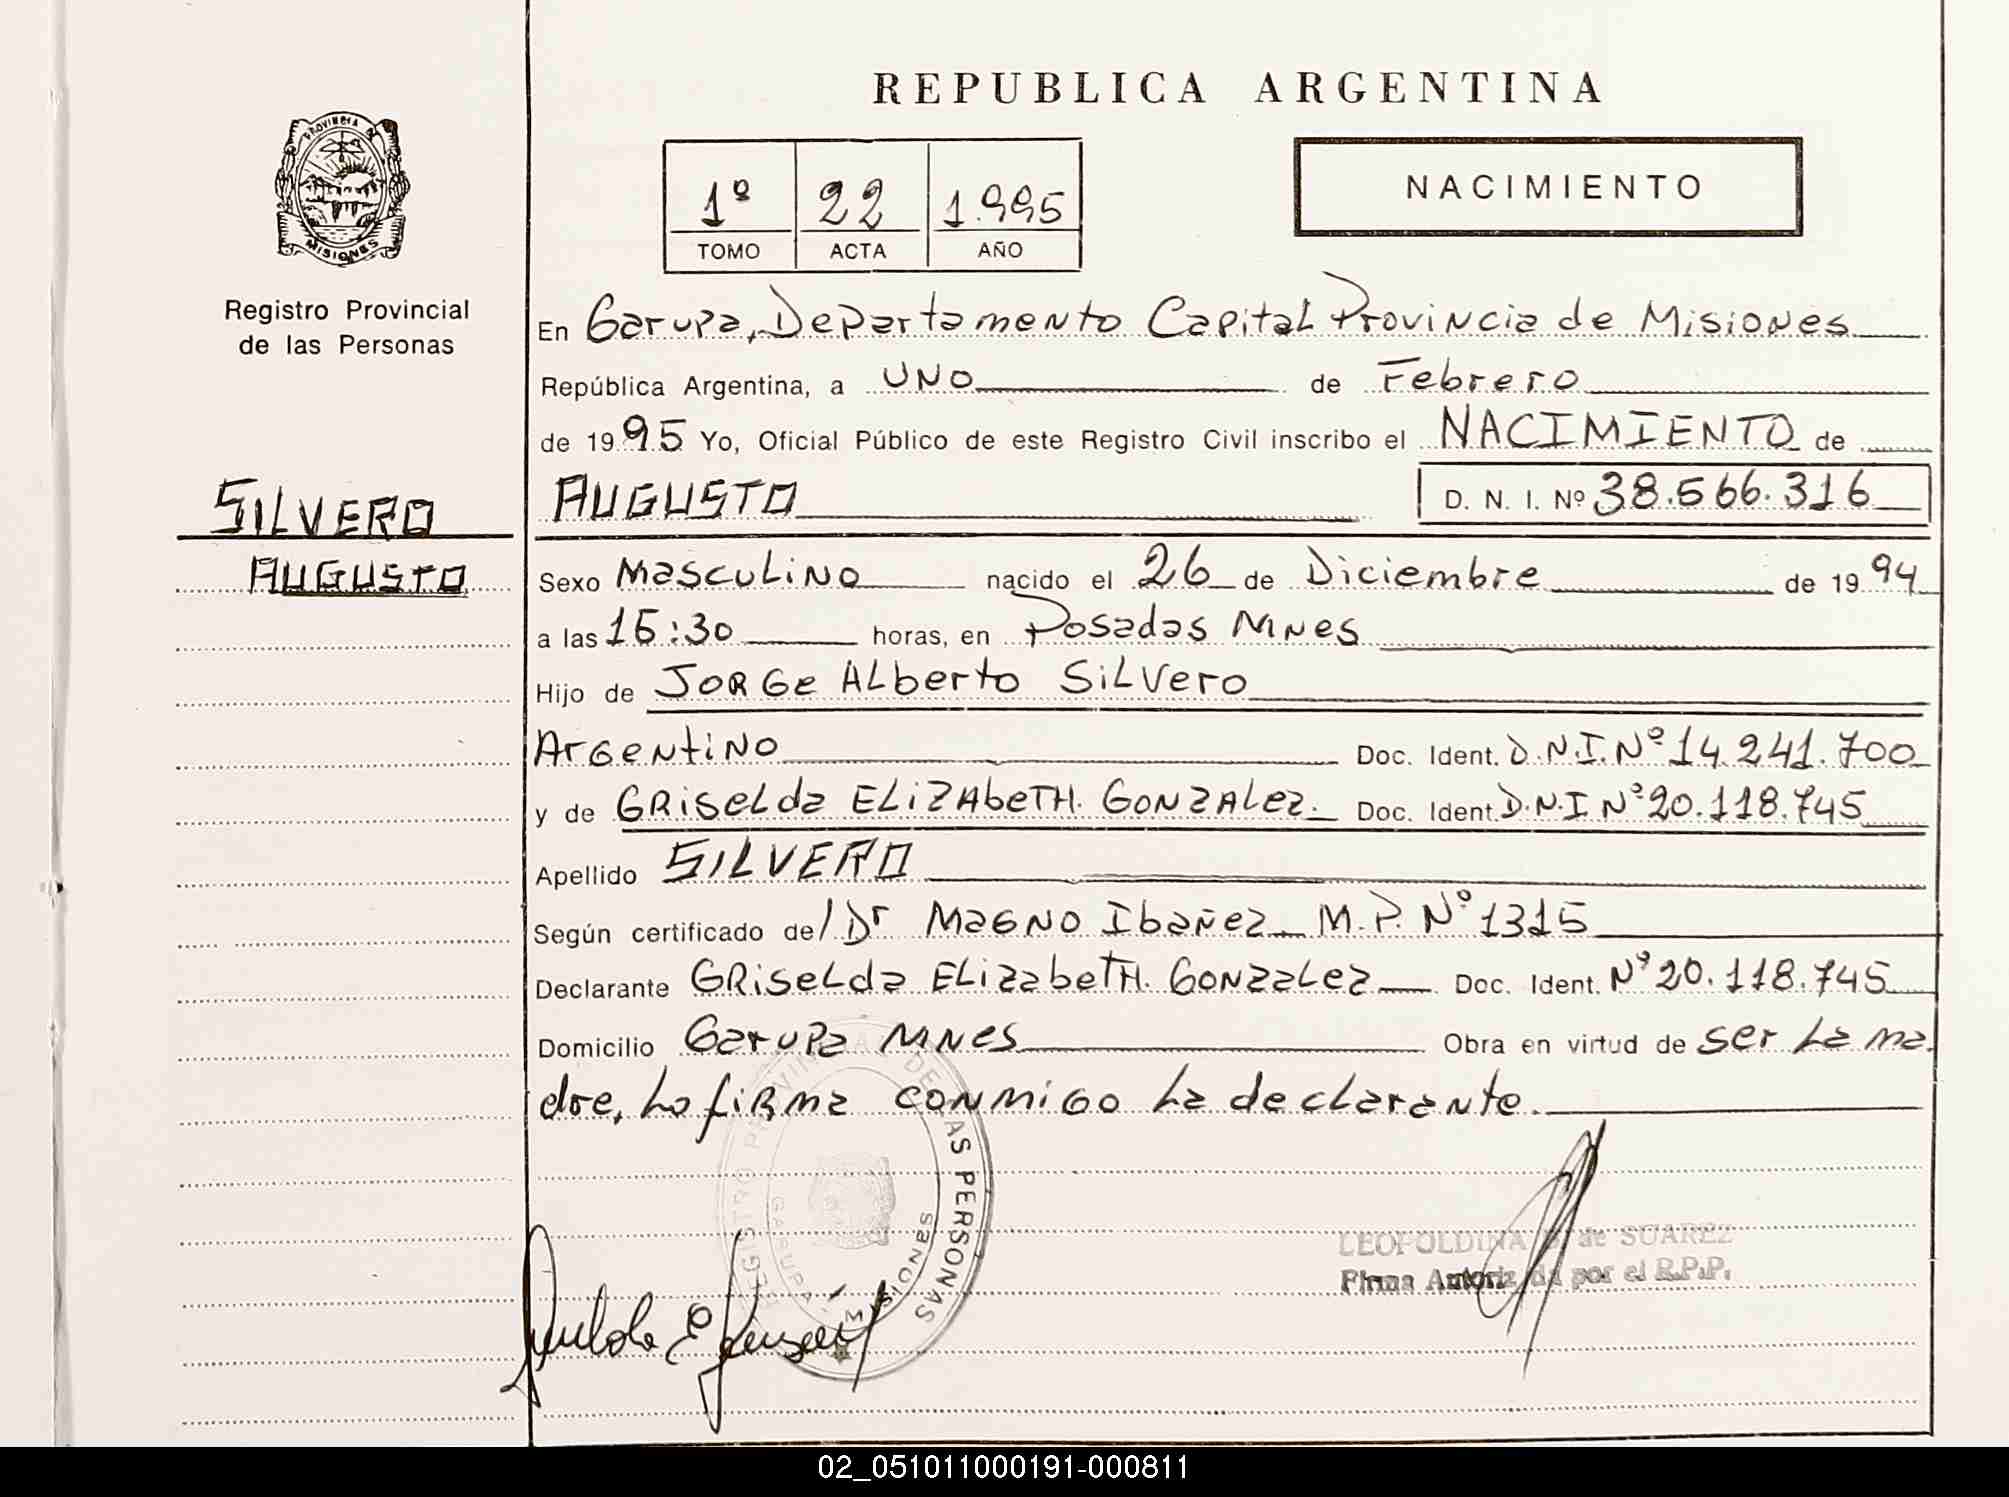 REPUBLICA ARGENTINA
PROVINCIA DE
MISIONES
Registro Provincial
de las Personas
1º 22 1.995
TOMO ACTA AÑO
NACIMIENTO
En Garupa, Departamento Capital Provincia de Misiones
República Argentina, a UNO de Febrero
de 1995 Yo, Oficial Público de este Registro Civil inscribo el NACIMIENTO de
SILVERO
AUGUSTO D. N. I. Nº 38.566.316
AUGUSTO
Sexo Masculino nacido el 26 de Diciembre de 1994
a las 15:30 horas, en Posadas Mnes
Hijo de Jorge Alberto Silvero
Argentino Doc. Ident. D.N.I. Nº 14.241.700
y de Griselda Elizabeth. Gonzalez. Doc. Ident. D.N.I Nº 20.118.745
Apellido SILVERO
Según certificado de/ Dr Magno Ibañez M.P. Nº 1315
Declarante Griselda Elizabeth. Gonzalez Doc. Ident. Nº 20.118.745
Domicilio Garupa Mnes Obra en virtud de ser La ma
dre, Lo firma conmigo La declarante.
REGISTRO PROVINCIAL DE LAS PERSONAS
GARUPA - MISIONES
LEOPOLDINA de SUAREZ
Firma Autorizada por el R.P.P.
02_051011000191-000811